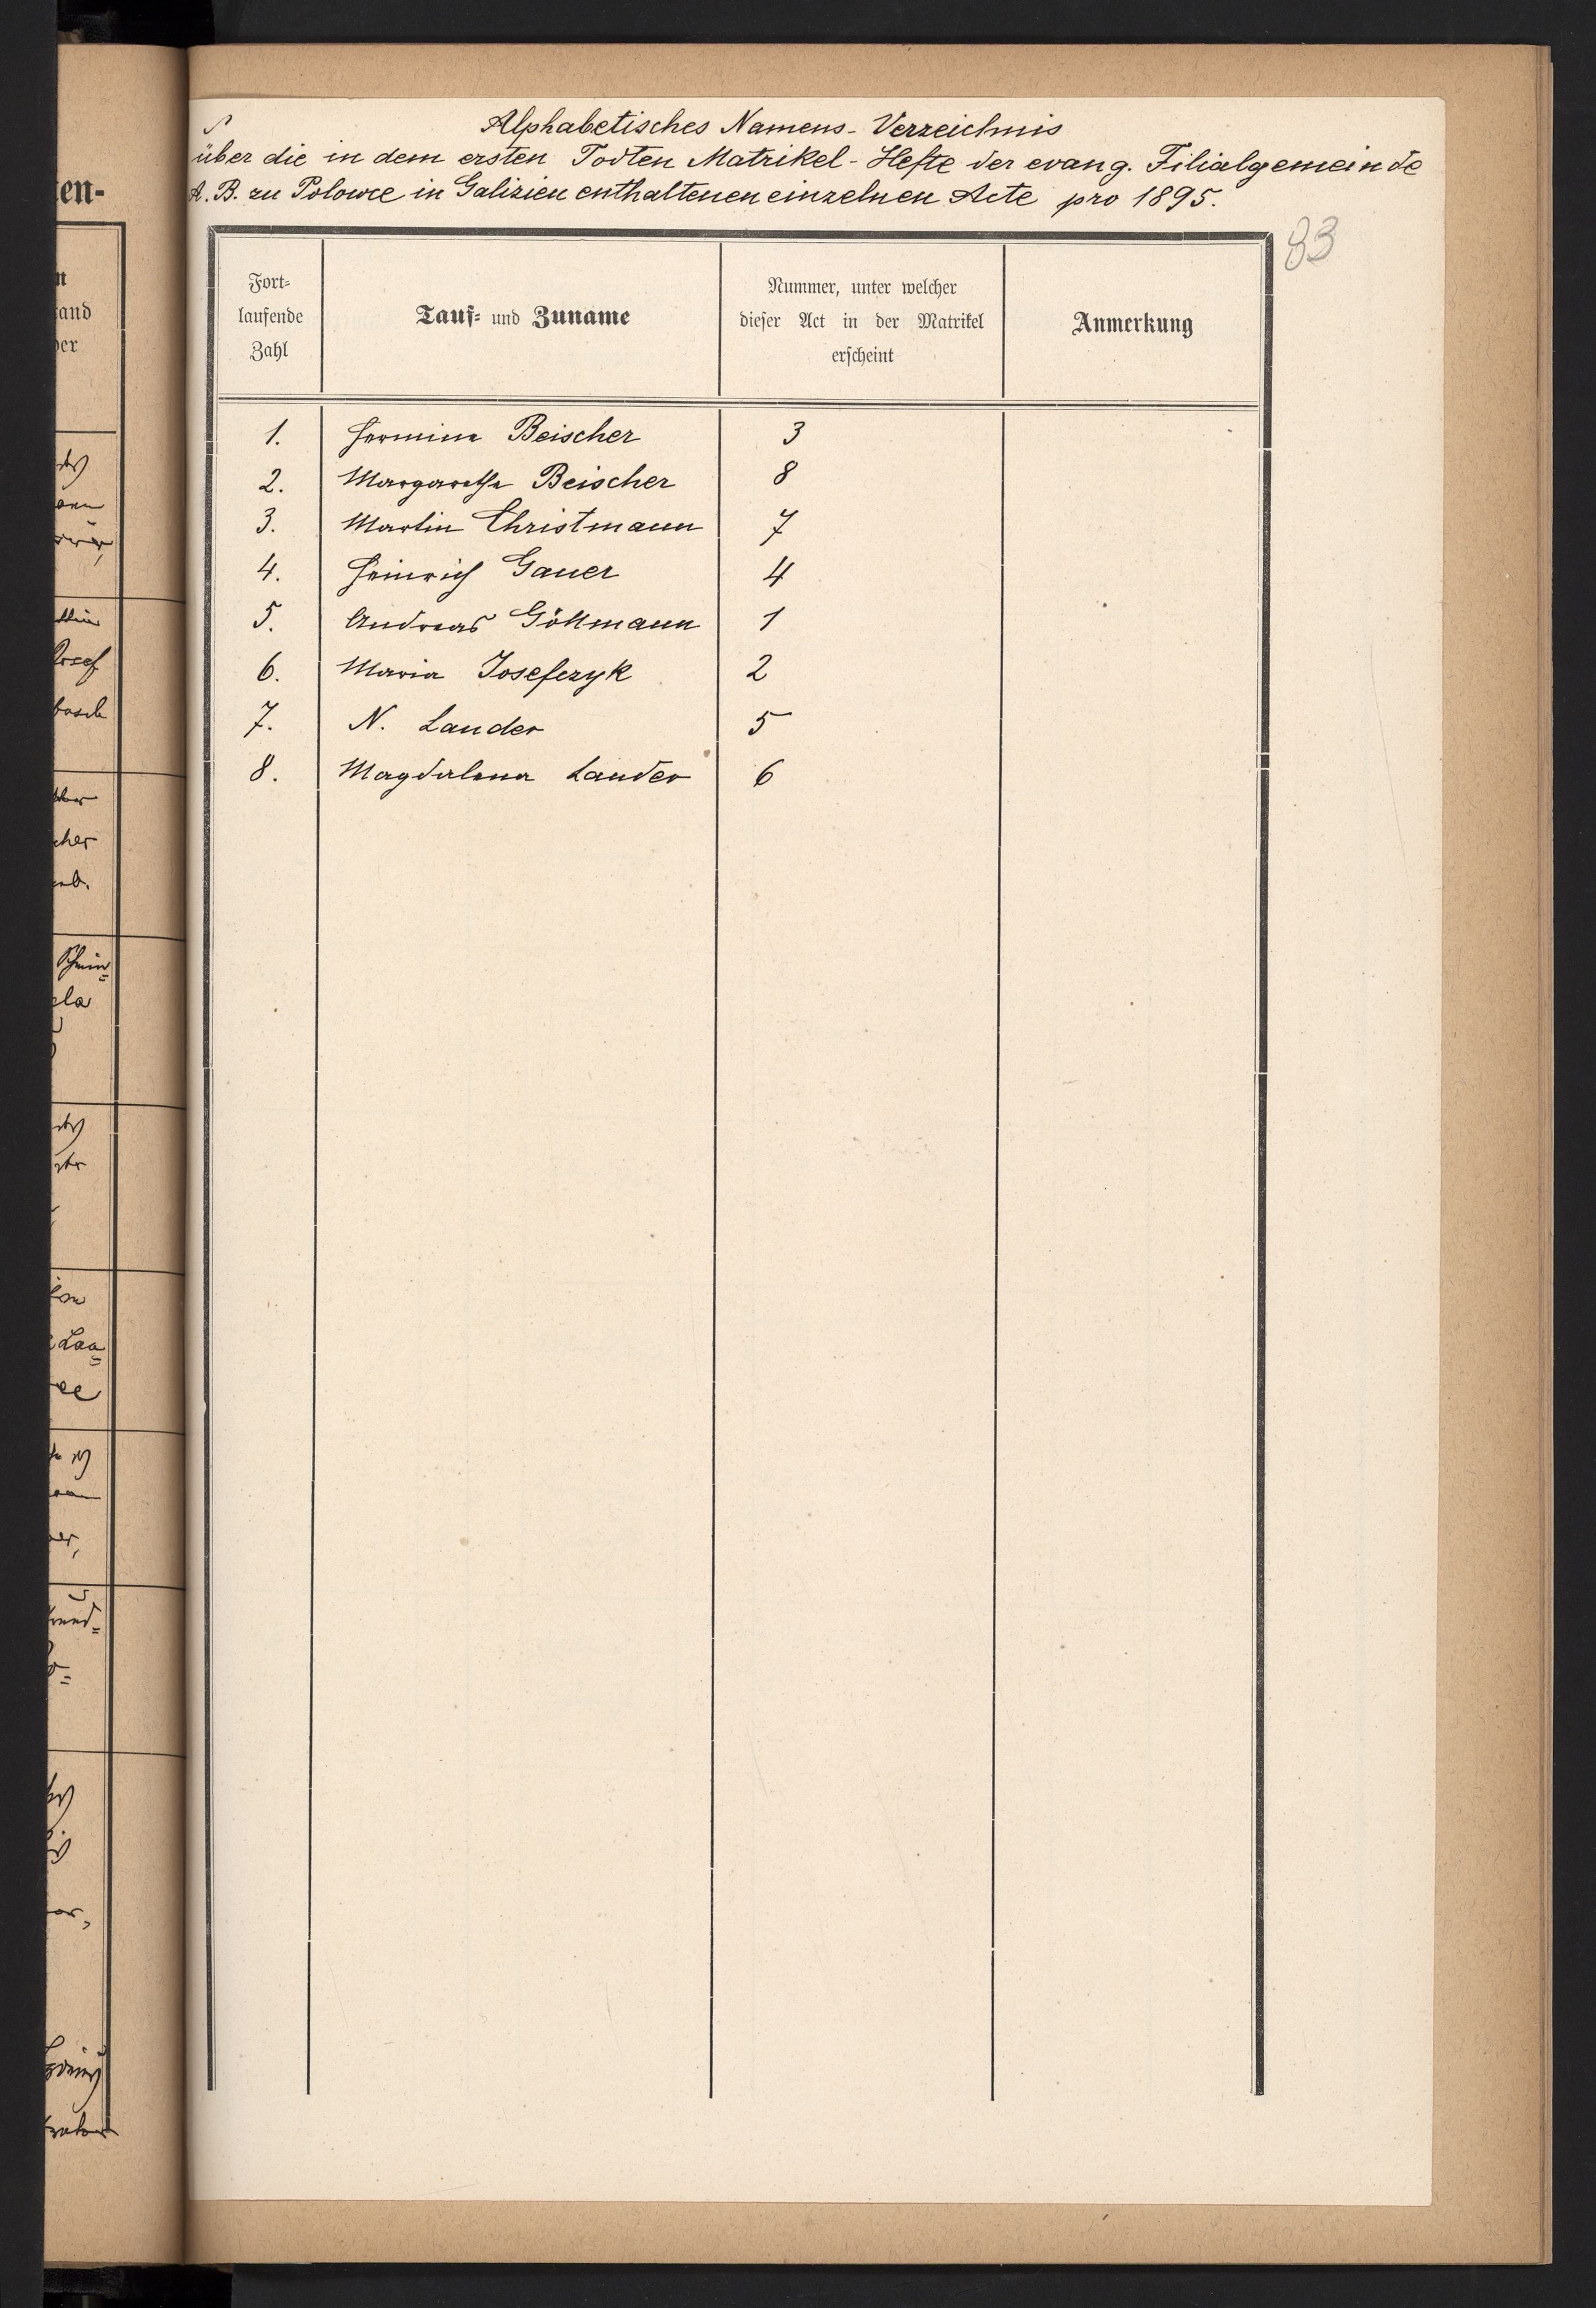 Alphabetisches Namens-Verzeichnis
über die in dem ersten Todten Matrikel-Hefte der evang. Filialgemeinde
A. B. zu Polowce in Galizien enthaltenen einzelnen Acte pro 1895.
83
Fort-
laufende
Zahl
Tauf- und Zuname
Nummer, unter welcher
dieser Act in der Matrikel
erscheint
Anmerkung
1. Hermine Beischer 3
2. Margaretha Beischer 8
3. Martin Christmann 7
4. Heinrich Gauer 4
5. Andreas Göttmann 1
6. Maria Josefczyk 2
7. N. Lander 5
8. Magdalena Lander 6